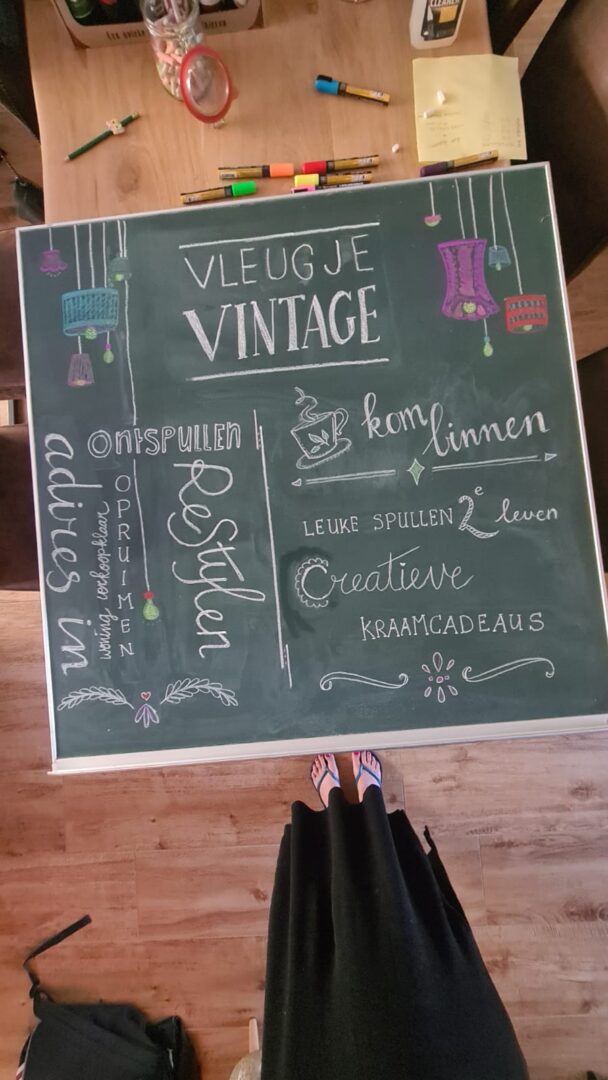 VLEUGJE
VINTAGE
adires in
woning verkoopklaar
OPRUIMEN
ontSPULLEN
ReStylen
kom binnen
LEUKE SPULLEN 2e leven
Creatieve
KRAAMCADEAUS
CLEANER